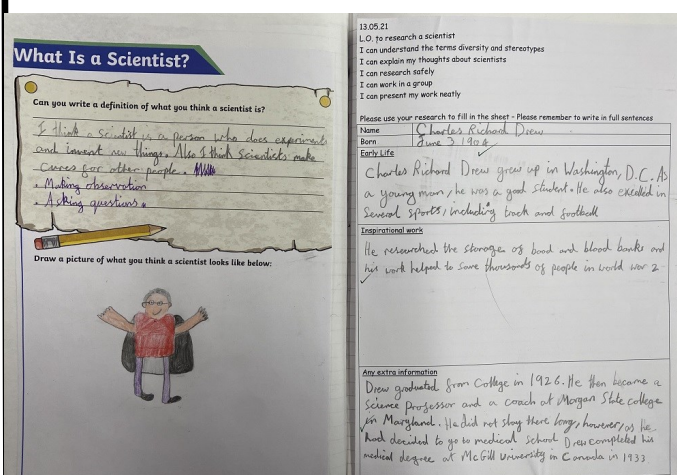 What Is a Scientist?
Can you write a definition of what you think a scientist is?
I think a scientist is a person who does experiments
and invent new things. Also I think scientists make
cures for other people.
. Making observation
. Asking questions.
Draw a picture of what you think a scientist looks like below:
13.05.21
L.O. to research a scientist
I can understand the terms diversity and stereotypes
I can explain my thoughts about scientists
I can research safely
I can work in a group
I can present my work neatly
Please use your research to fill in the sheet - Please remember to write in full sentences
Name Charles Richard Drew
Born June 3 1904
Early Life
Charles Richard Drew grew up in Washington, D.C. As
a young man, he was a good student. He also excelled in
several sports, including track and football
Inspirational work
He researched the storage of and blood banks and
his work helped to save thousands of people in world war 2
Any extra information
Drew graduated from College in 1926. He then became a
science professor and a coach at Morgan State college
in Maryland. He did not stay there long, however, as he
had decided to go to medical school Drew completed his
medical degree at McGill university in Canada in 1933